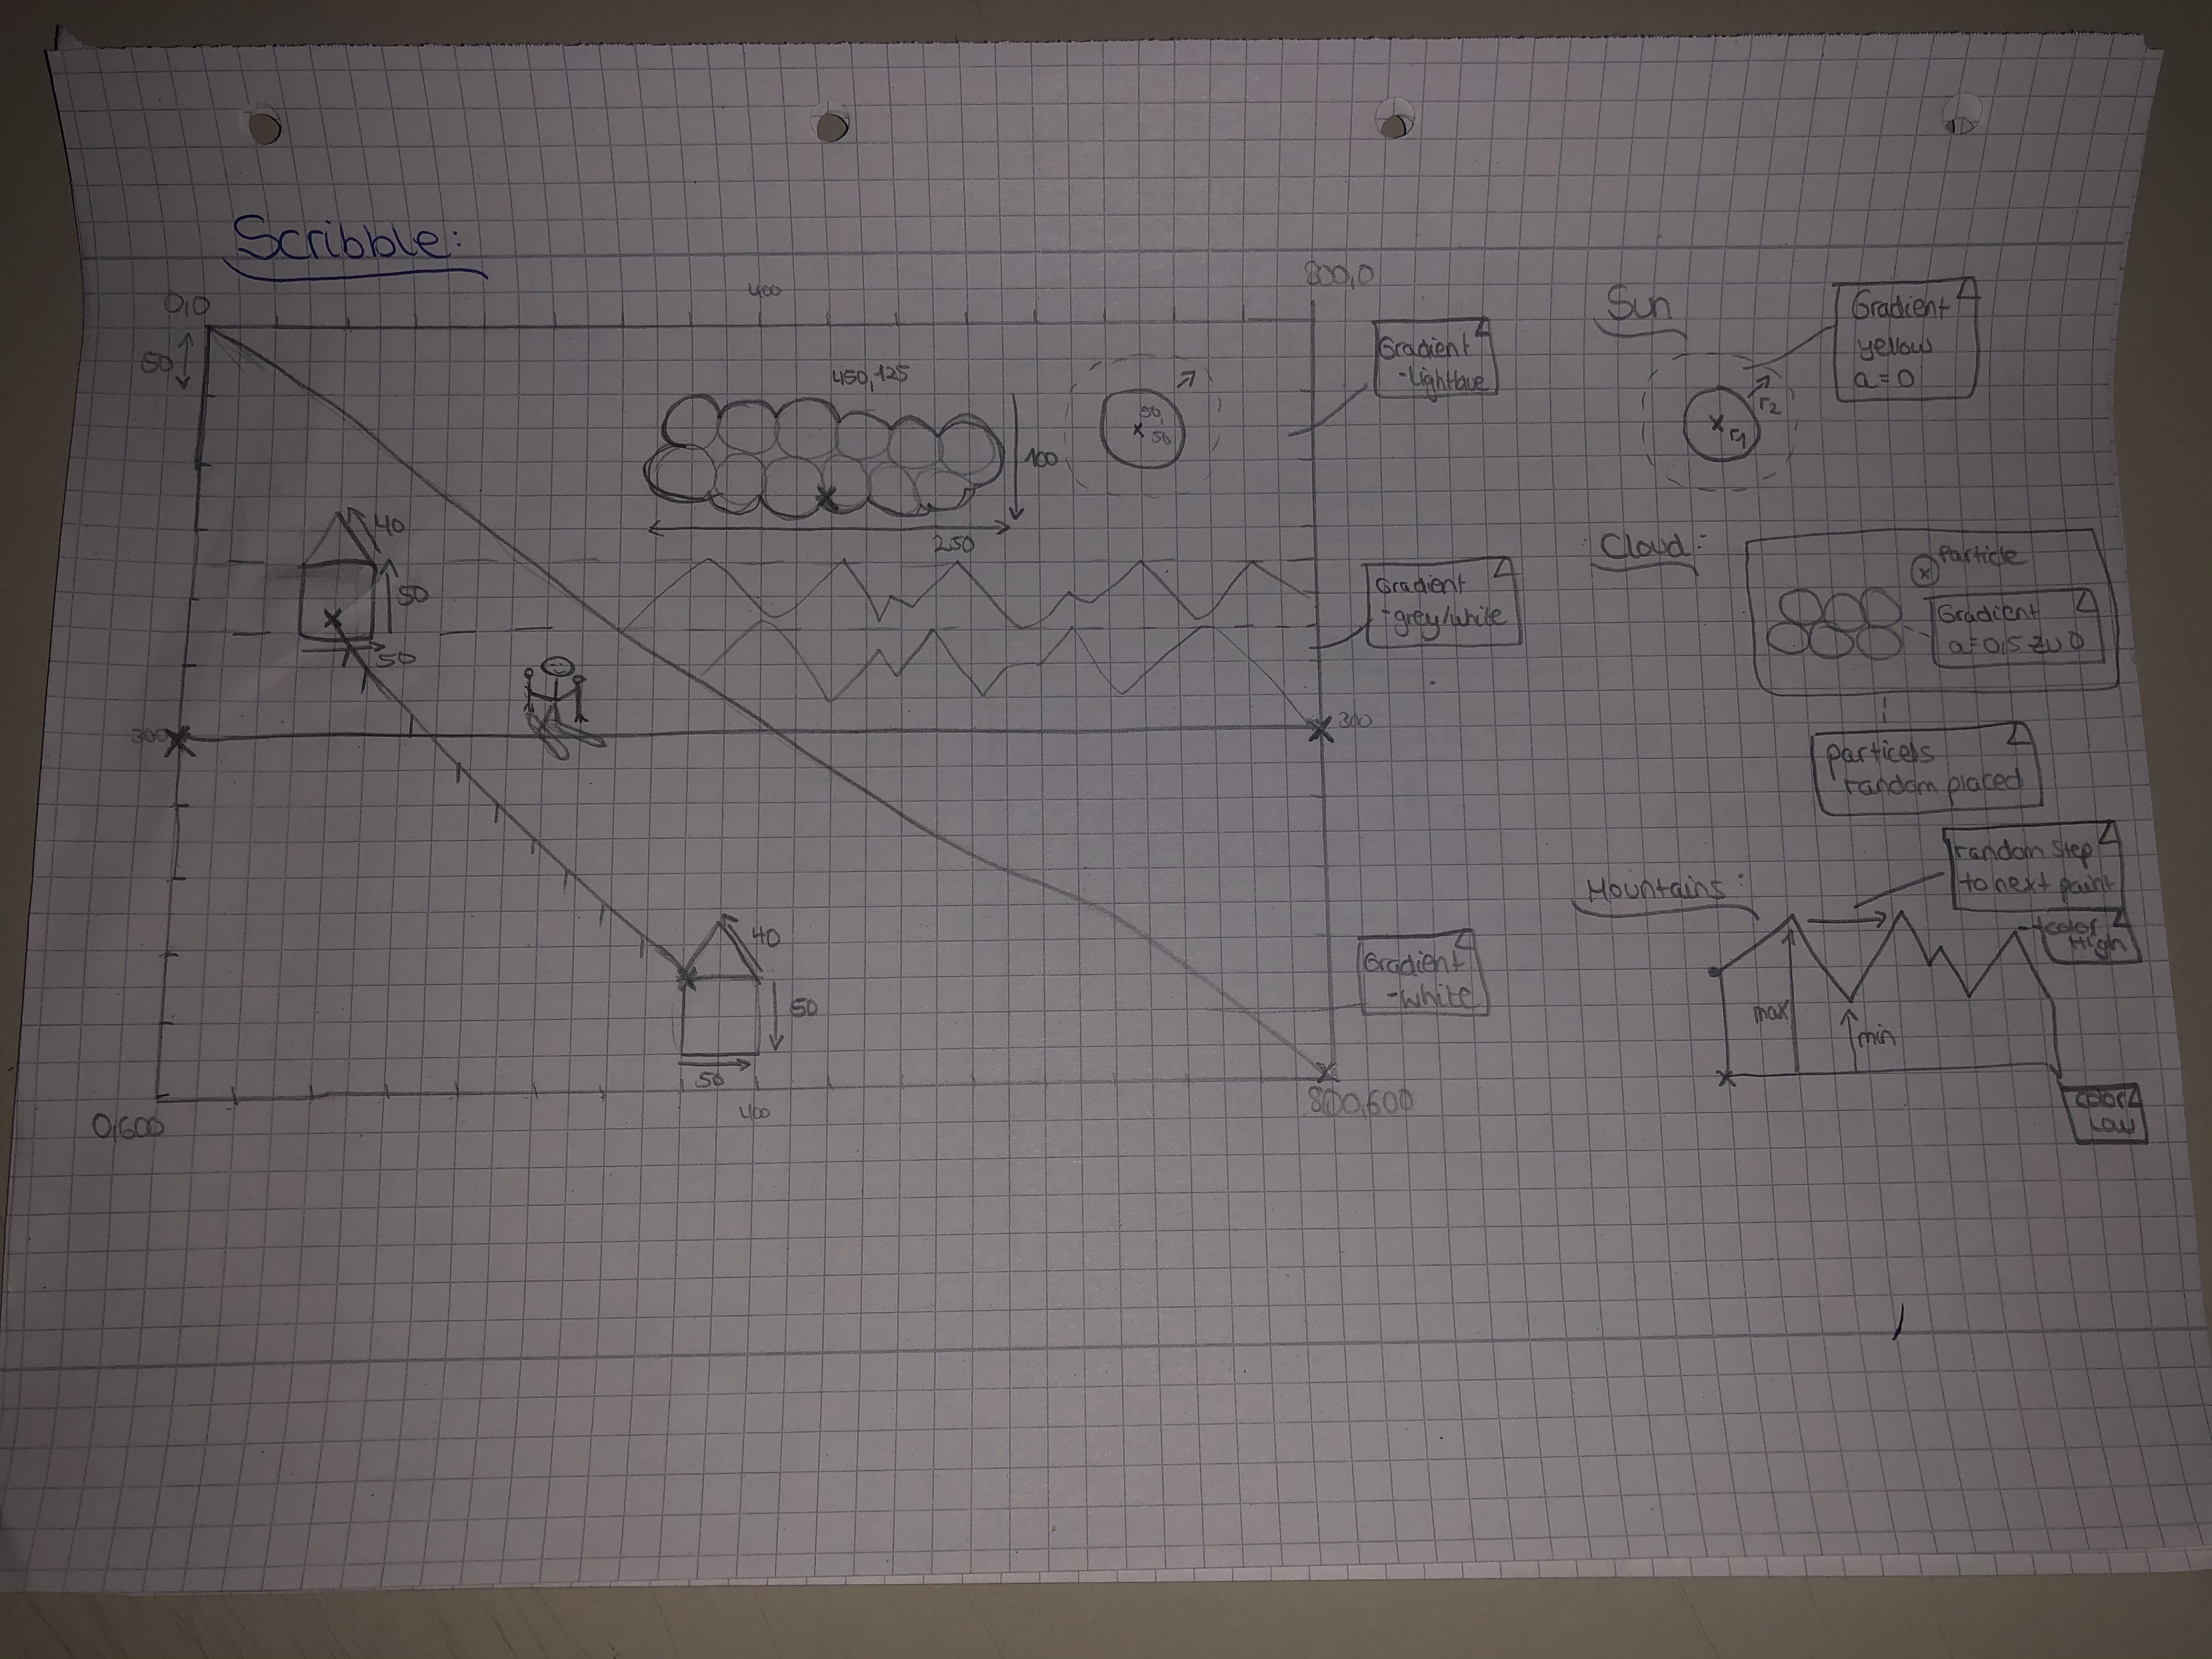 Scribble:
0,0
50
400
800,0
450,125
100
250
50,
50
40
50
50
300
300
40
50
50
400
0,600
800,600
Gradient
-Lightblue
Gradient
-grey/white
Gradient
-white
Sun
r1
r2
Gradient
yellow
a=0
Cloud:
x Particle
Gradient
a=0,5 zu 0
particels
random placed
Mountains:
max
min
random step
to next point
color
High
color
Low